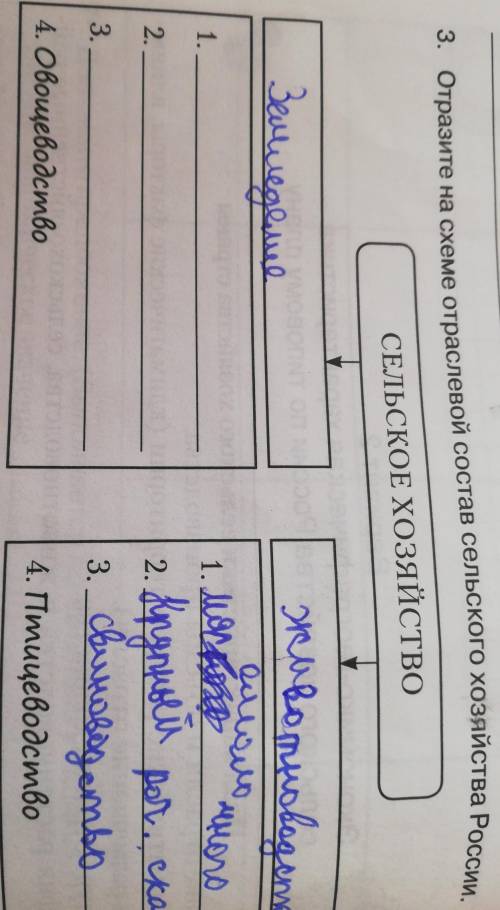 3. Отразите на схеме отраслевой состав сельского хозяйства России.
СЕЛЬСКОЕ ХОЗЯЙСТВО
Земледелие
1.
2.
3.
4. Овощеводство
животноводст
1. много
2. Крупный рог. ска
3. свиноводство
4. Птицеводство